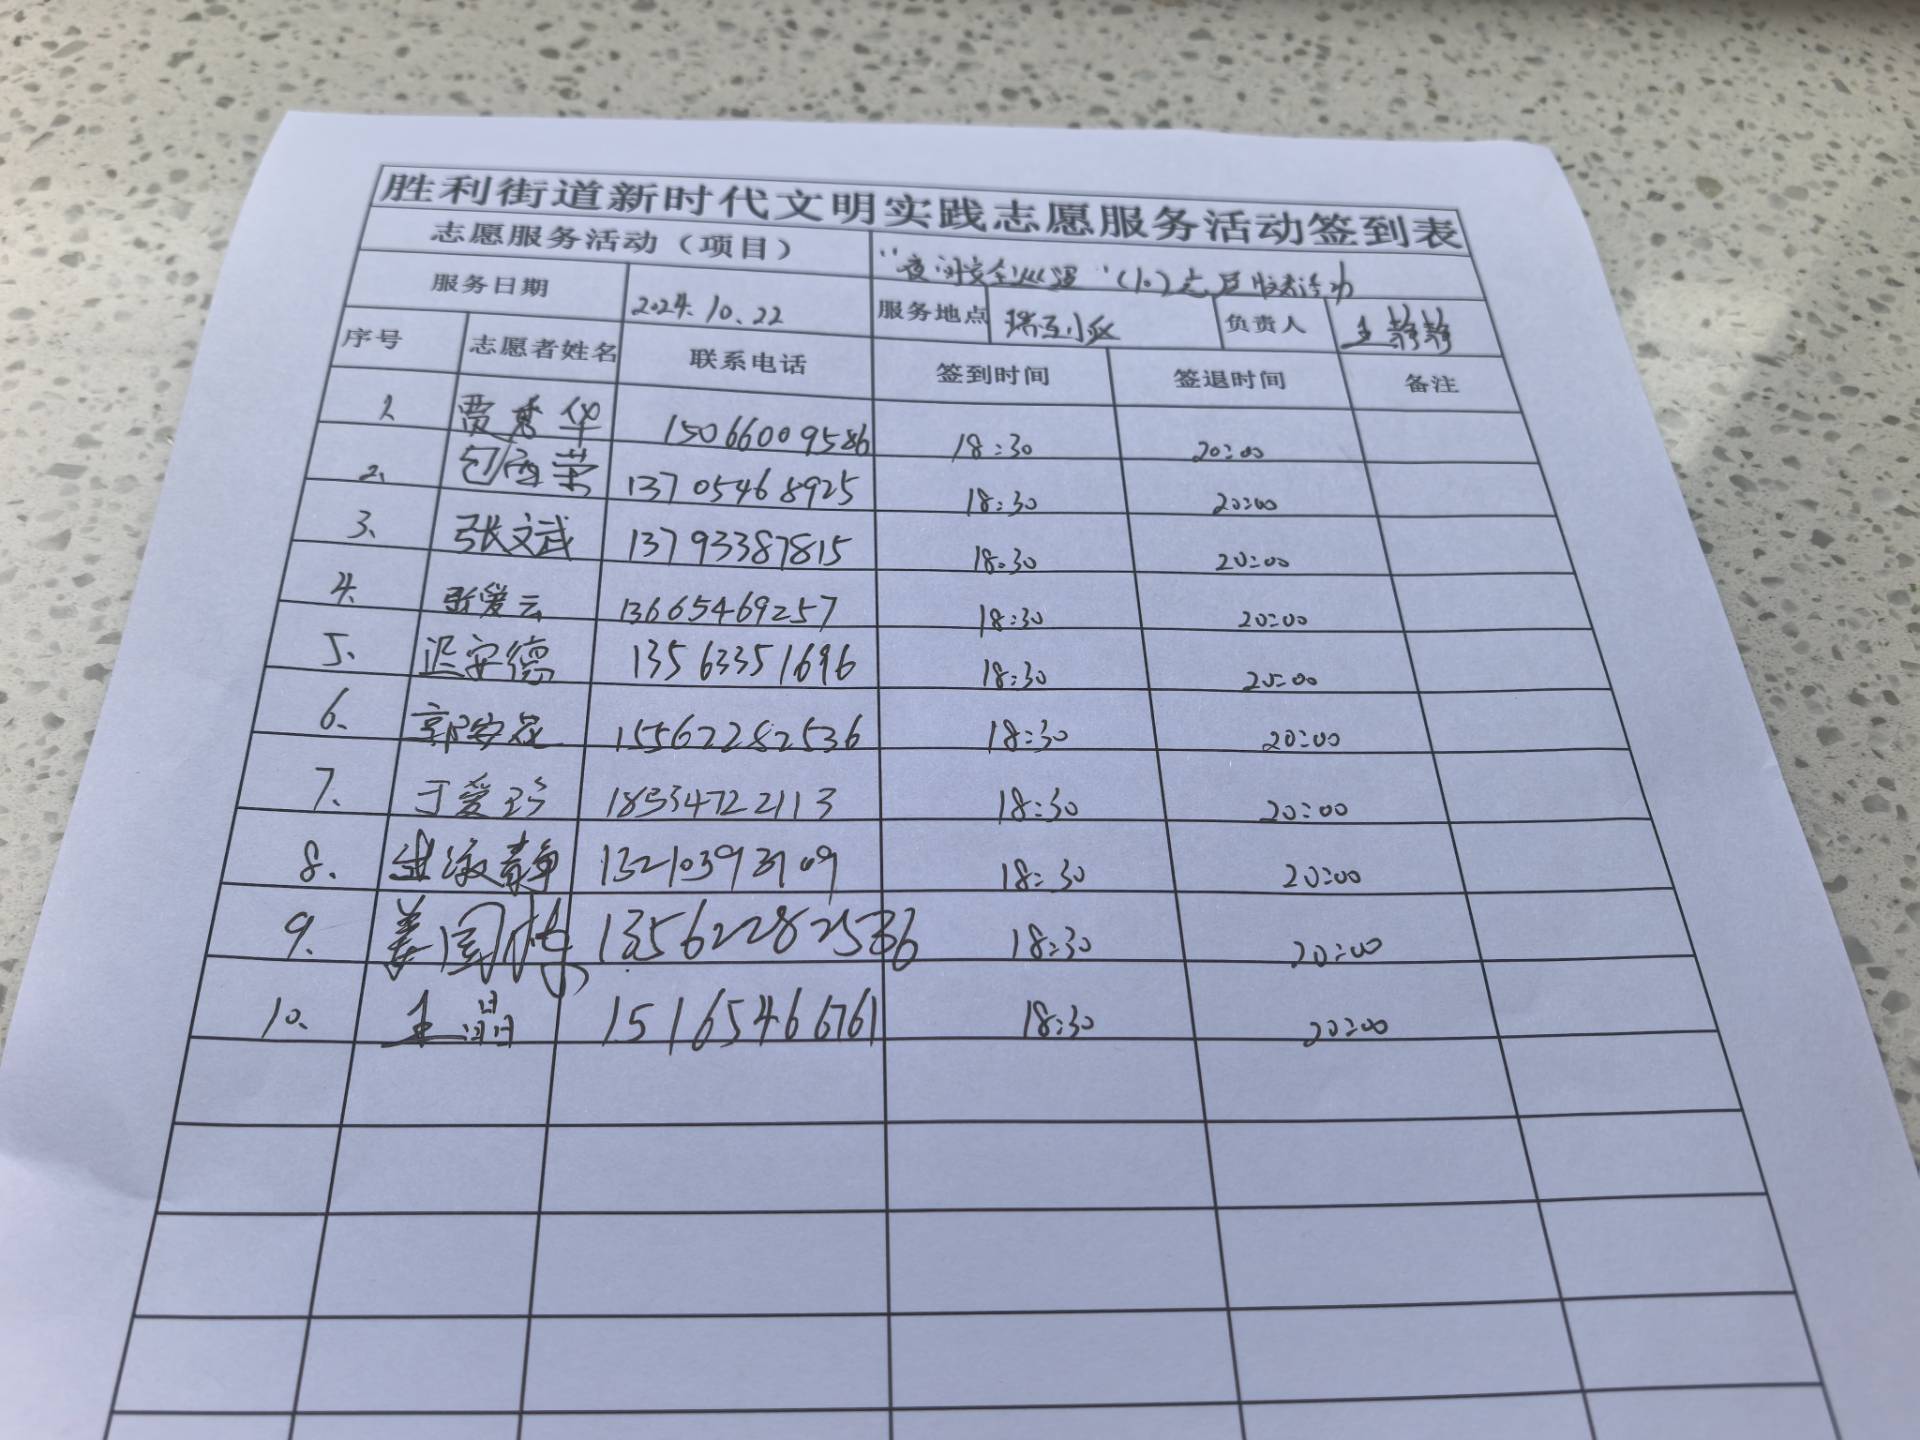 胜利街道新时代文明实践志愿服务活动签到表
志愿服务活动（项目） “夜间安全巡逻”（10）志愿服务活动
服务日期 2024.10.22 服务地点 小区 负责人 王静静
序号 志愿者姓名 联系电话 签到时间 签退时间 备注
1. 贾秀华 15066009586 18:30 20:00
2. 包 荣 13705468925 18:30 20:00
3、 张文武 13793387815 18:30 20:00
4. 张爱云 13665469257 18:30 20:00
5、 迟安德 13563351696 18:30 20:00
6、 郭安 15562282536 18:30 20:00
7、 于爱珍 18534722113 18:30 20:00
8. 静 18:30 20:00
9. 姜国 13562282536 18:30 20:00
10. 王晶 15165466761 18:30 20:00